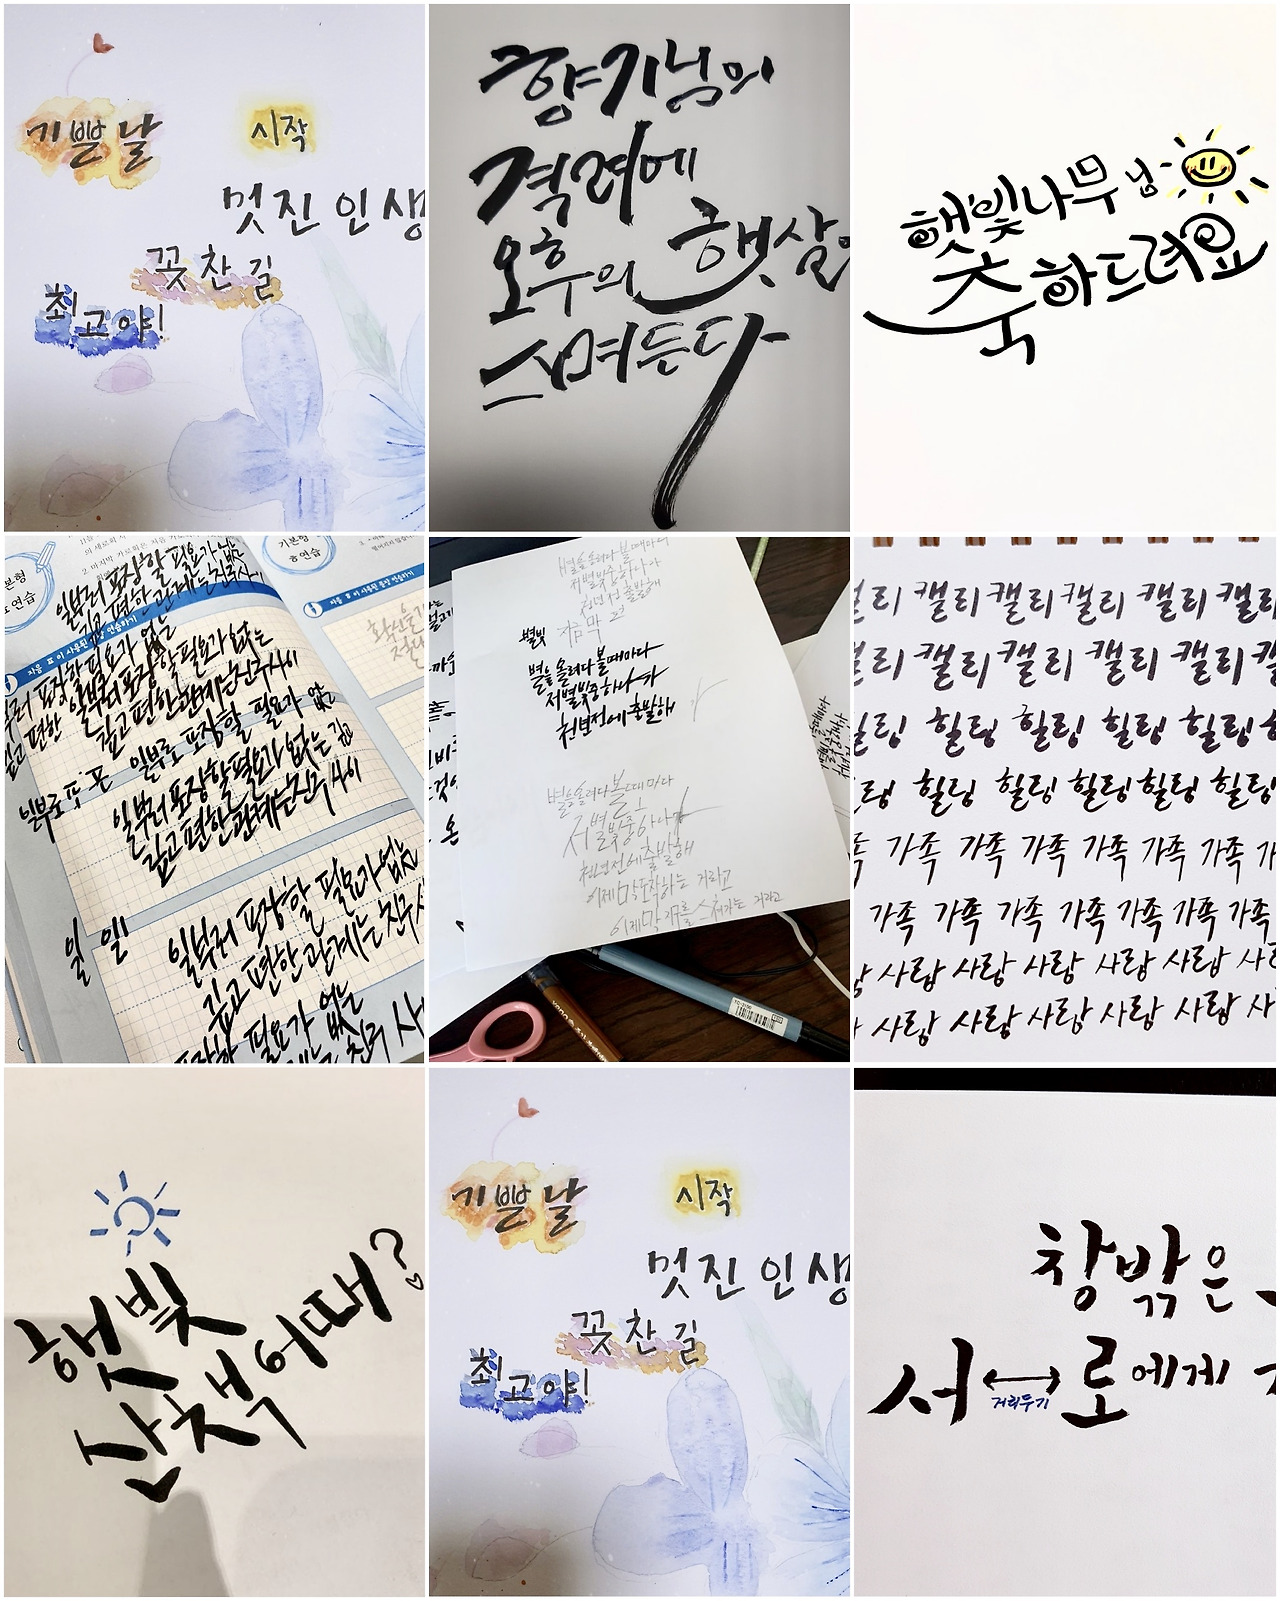 기쁜 날
시작
멋진 인생
꽃찬 길
최고야!
향기님의
격려에
오후의 햇살
스며든다
햇빛나무님
축하드려요
기본형
연습
기본형
응연습
일부러 포장할 필요가 없는
깊고 편한 관계는 친구사이
자음 ㅍ이 사용된 문장 연습하기
일부러 포장할 필요가 없는
일부러 포장할 필요가 없는
깊고 편한 관계는 친구사이
일부로 포장할 필요가 없는
일부러 포장할 필요가 없는 깊고
깊고 편한 관계는 친구사이
일 일
일부러 포장할 필요가 없는
깊고 편한 관계는 친구사
포장할 필요가 없는
별을 올려다 볼 때마다
저별빛중하나가
천년전 출발해
지금 막
별빛
별을 올려다 볼때마다
저별빛중하나가
천년전에출발해
별을올려다볼때마다
저별빛중하나가
천년전에출발해
이제막도착하는 거라고
이제막 지구를 스쳐가는 거라고
캘리 캘리 캘리 캘리 캘리 캘리
캘리 캘리 캘리 캘리 캘리 캘리
힐링 힐링 힐링 힐링 힐링
힐링 힐링 힐링 힐링 힐링
족 가족 가족 가족 가족 가족 가족 가
가족 가족 가족 가족 가족 가족 가족
사랑 사랑 사랑 사랑 사랑 사
사랑 사랑 사랑 사랑 사랑 사
햇빛
산책 어때?
기쁜 날
시작
멋진 인생
꽃찬 길
최고야!
창밖은
서↔로에게
거리두기